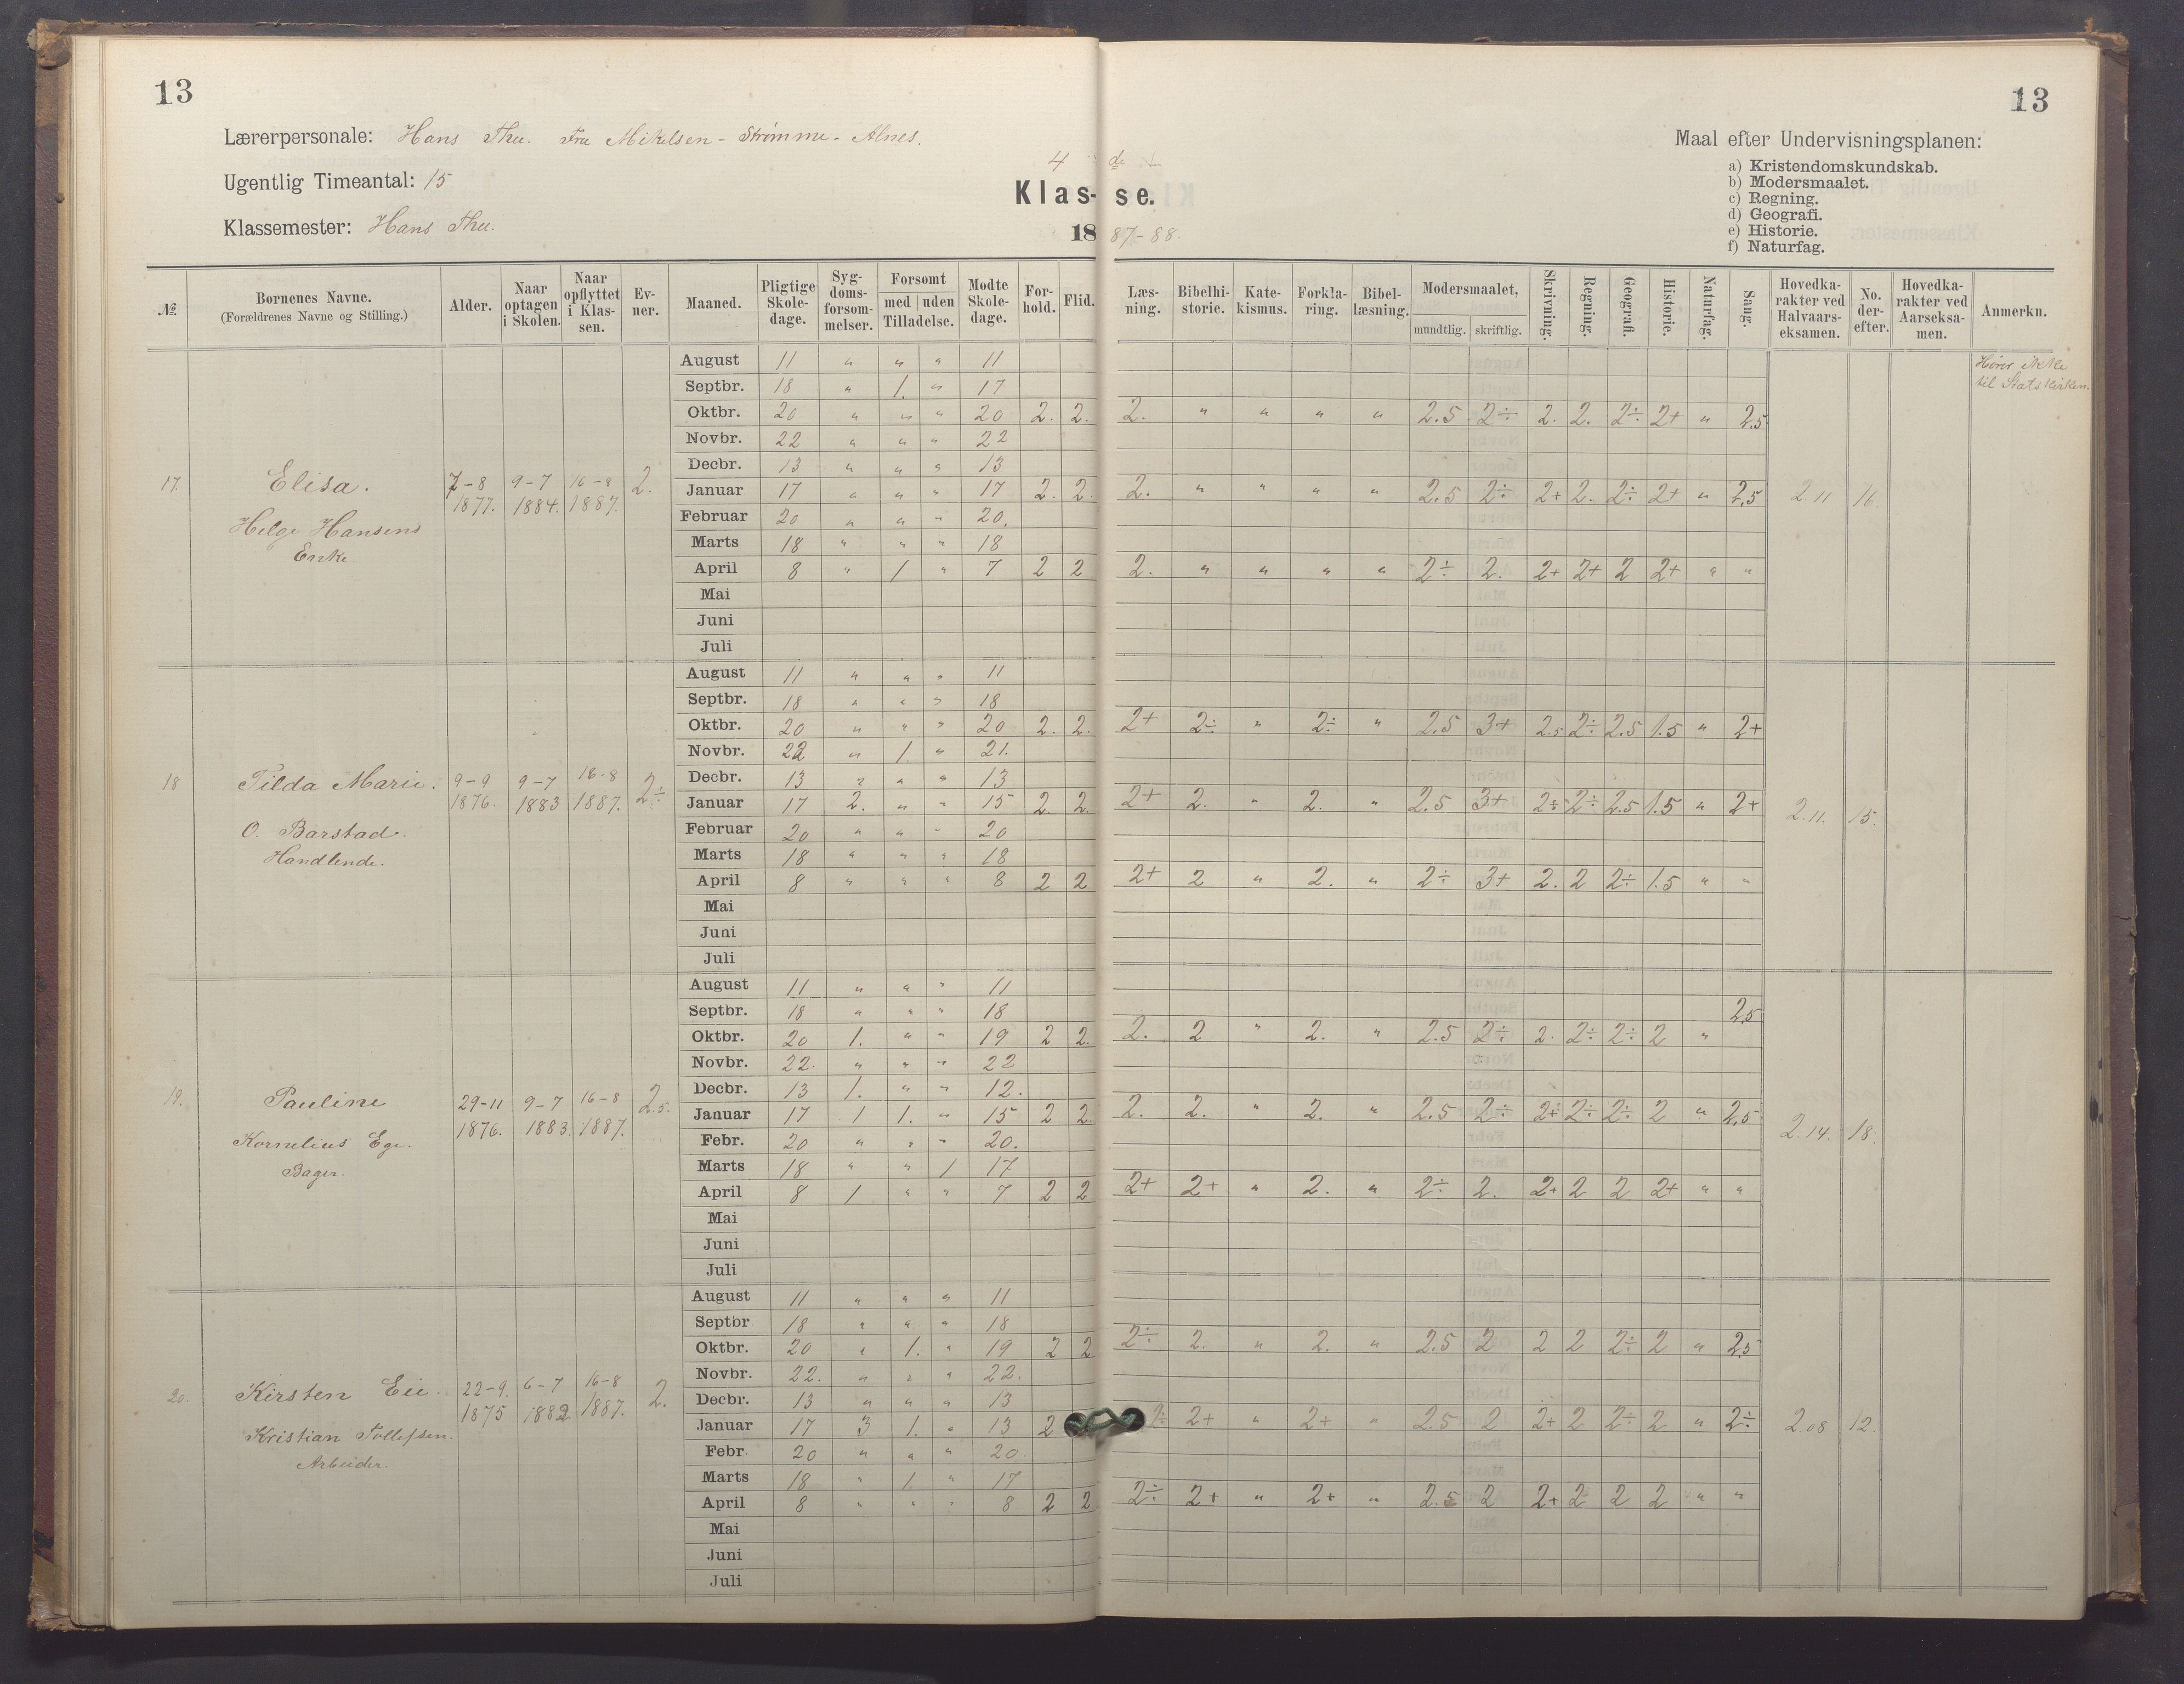 13
13
Lærerpersonale: Hans Thu. Fru Mikelsen - Strømme - Alnes.
Ugentlig Timeantal: 15
Klassemester: Hans Thu.
4 de
Klas- se.
18 87-88.
Maal efter Undervisningsplanen:
a) Kristendomskundskab.
b) Modersmaalet.
c) Regning.
d) Geografi.
e) Historie.
f) Naturfag.
№ | Bornenes Navne. (Forældrenes Navne og Stilling.) | Alder. | Naar optagen i Skolen. | Naar opflyttet i Klassen. | Evner. | Maaned. | Pligtige Skoledage. | Sygdomsforsommelser. | Forsomt med uden Tilladelse. | Modte Skoledage. | Forhold. | Flid. | Læsning. | Bibelhistorie. | Katekismus. | Forklaring. | Bibellæsning. | Modersmaalet, mundtlig. skriftlig. | Skrivning. | Regning. | Geografi. | Historie. | Naturfag. | Sang. | Hovedkarakter ved Halvaarseksamen. | No. derefter. | Hovedkarakter ved Aarseksamen. | Anmerkn.
17. Elisa. Helge Hansens Enke. | 7-8 1877. | 9-7 1884. | 16-8 1887. | 2. | 2 11 | 16. | Hører ikke til Statskirken.
August 11 " " " 11
Septbr. 18 " 1. " 17
Oktbr. 20 " " " 20 2. 2. 2. " " " " 2.5 2÷ 2. 2. 2÷ 2+ " 2.5
Novbr. 22 " " " 22
Decbr. 13 " " " 13
Januar 17 " " " 17 2. 2. 2. " " " " 2.5 2÷ 2+ 2. 2÷ 2+ " 2.5
Februar 20 " " " 20.
Marts 18 " " " 18
April 8 " 1 " 7 2 2 2. " " " " 2÷ 2. 2+ 2+ 2 2+ " "
Mai
Juni
Juli
18 Tilda Marie. O. Barstad. Handlende. | 9-9 1876. | 9-7 1883 | 16-8 1887. | 2÷ | 2.11. | 15.
August 11 " " " 11
Septbr. 18 " " " 18
Oktbr. 20 " " " 20 2. 2. 2+ 2÷ " 2÷ " 2.5 3+ 2.5 2÷ 2.5 1.5 " 2+
Novbr. 22 " 1. " 21.
Decbr. 13 " " " 13
Januar 17 2. " " 15 2 2. 2+ 2. " 2. " 2.5 3+ 2÷ 2÷ 2.5 1.5 " 2+
Februar 20 " " " 20
Marts 18 " " " 18
April 8 " " " 8 2 2 2+ 2 " 2. " 2÷ 3+ 2. 2 2÷ 1.5 " "
Mai
Juni
Juli
19. Pauline Kornelius Ege. Bager. | 29-11 1876. | 9-7 1883. | 16-8 1887. | 2.5. | 2.14. | 18.
August 11 " " " 11
Septbr. 18 " " " 18
Oktbr. 20 1. " " 19 2 2. 2. 2 " 2. " 2.5 2÷ 2. 2÷ 2÷ 2 " 2.5
Novbr. 22. " " " 22
Decbr. 13 1. " " 12.
Januar 17 1 1. " 15 2 2 2. 2. " 2. " 2.5 2÷ 2+ 2÷ 2÷ 2 " 2.5
Febr. 20 " " " 20.
Marts 18 " " 1 17
April 8 1 " " 7 2 2 2+ 2+ " 2. " 2÷ 2. 2+ 2 2 2+ " "
Mai
Juni
Juli
20. Kirsten Eie. Kristian Tollefsen. Arbeider. | 22-9. 1875 | 6-7 1882 | 16-8 1887. | 2. | 2.08 | 12.
August 11 " " " 11
Septbr 18 " " " 18
Oktbr. 20 " 1. " 19 2 2 2÷ 2. " 2. " 2.5 2 2 2 2÷ 2 " 2.5
Novbr. 22. " " " 22.
Decbr. 13 " " " 13
Januar 17 3 1. " 13 2 2÷ 2+ " 2+ " 2.5 2 2+ 2 2÷ 2 " 2÷
Febr. 20 " " " 20.
Marts 18 " 1. " 17
April 8 " " " 8 2 2 2÷ 2+ " 2+ " 2.5 2 2+ 2 2 2 " "
Mai
Juni
Juli